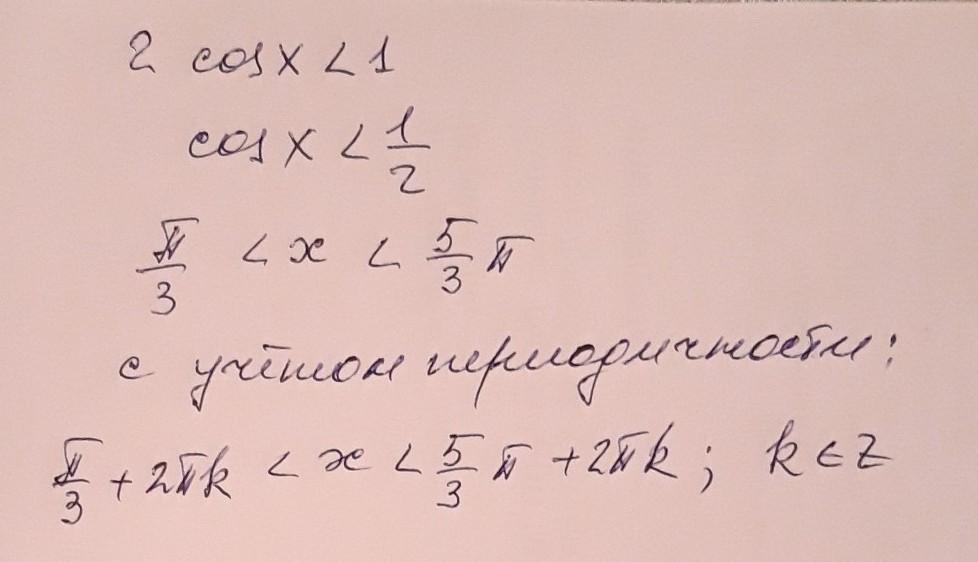 2 cos x < 1
cos x < 1/2
π/3 < x < 5/3 π
с учётом периодичности:
π/3 + 2πk < x < 5/3 π + 2πk; k ∈ Z